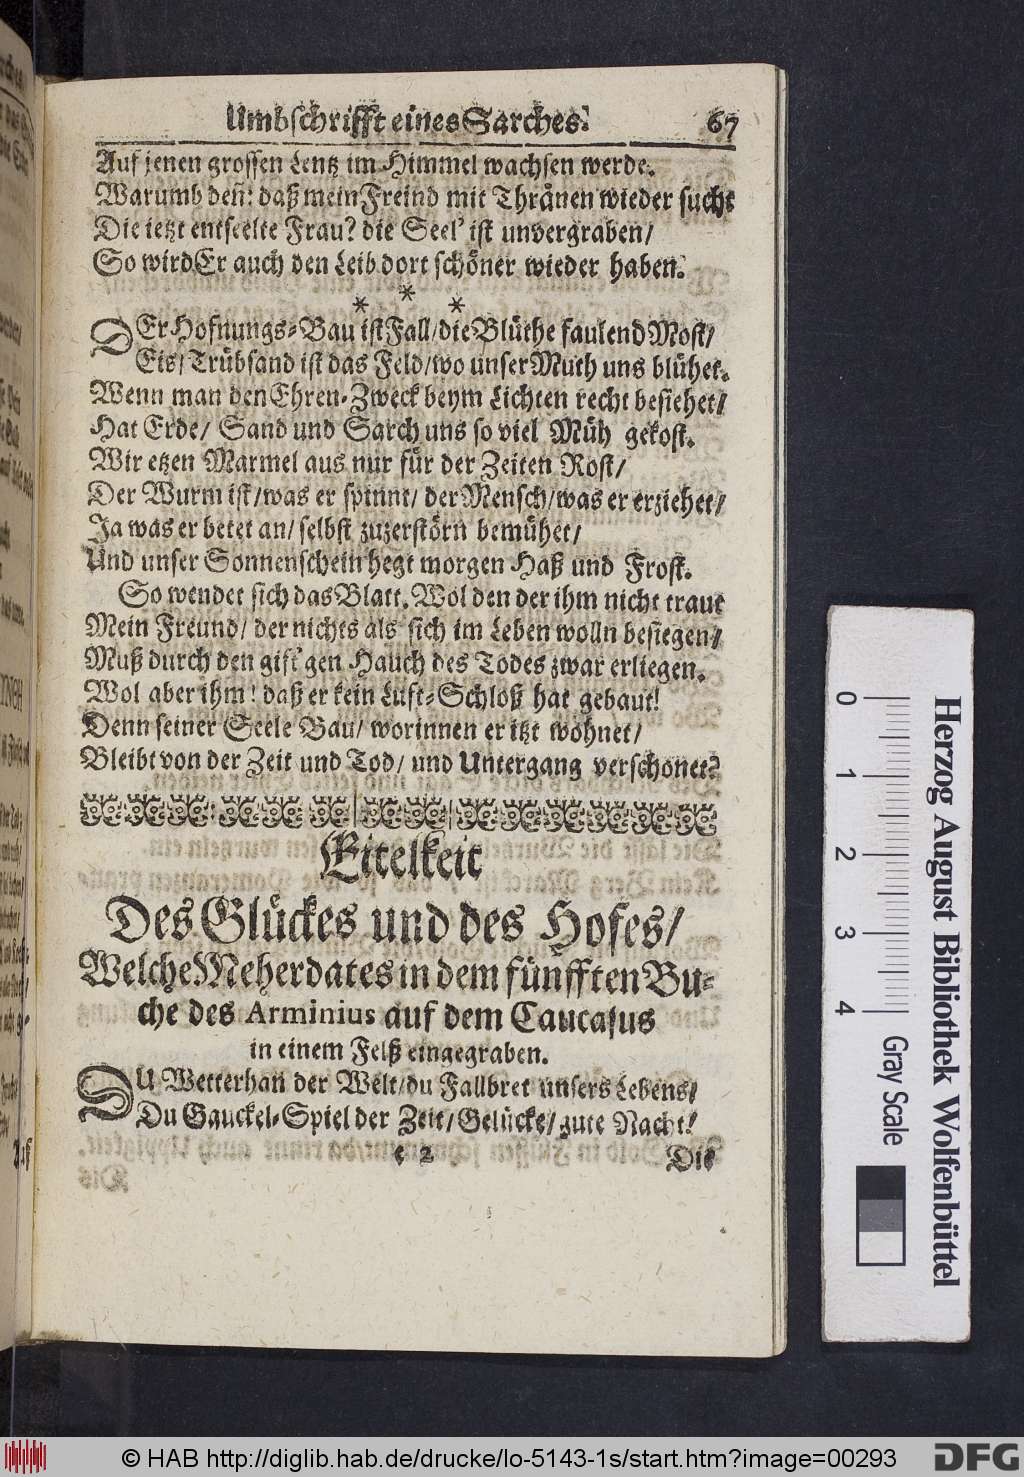 Umbschrifft eines Sarches. 67
Auf jenen grossen Lentz im Himmel wachsen werde.
Warumb deñ: daß mein Freind mit Thränen wieder sucht
Die ietzt entseelte Frau? die Seel' ist unvergraben/
So wird Er auch den Leib dort schöner wieder haben.
* * *
DEr Hofnungs-Bau ist Fall/ die Blüthe faulend Most/
Eis/ Trübsand ist das Feld/ wo unser Muth uns blühet.
Wenn man den Ehren-Zweck beym Lichten recht besiehet/
Hat Erde/ Sand und Sarch uns so viel Müh gekost.
Wir etzen Marmel aus nur für der Zeiten Rost/
Der Wurm ist/ was er spinnt/ der Mensch/ was er erziehet/
Ja was er betet an/ selbst zuzerstörn bemühet/
Und unser Sonnenschein hegt morgen Haß und Frost.
So wendet sich das Blatt. Wol den der ihm nicht traut
Mein Freund/ der nichts als sich im Leben wolln besiegen/
Muß durch den gift'gen Hauch des Todes zwar erliegen.
Wol aber ihm! daß er kein Luft-Schloß hat gebaut!
Denn seiner Seele Bau/ worinnen er itzt wohnet/
Bleibt von der Zeit und Tod/ und Untergang verschonet?
Eitelkeit
Des Glückes und des Hofes/
Welche Meherdates in dem fünfften Bu-
che des Arminius auf dem Caucasus
in einem Felß eingegraben.
DU Wetterhan der Welt/ du Fallbret unsers Lebens/
Du Gauckel-Spiel der Zeit/ Gelücke/ gute Nacht!
e 2 Die
Herzog August Bibliothek Wolfenbüttel
0 1 2 3 4
Gray Scale
© HAB http://diglib.hab.de/drucke/lo-5143-1s/start.htm?image=00293
DFG